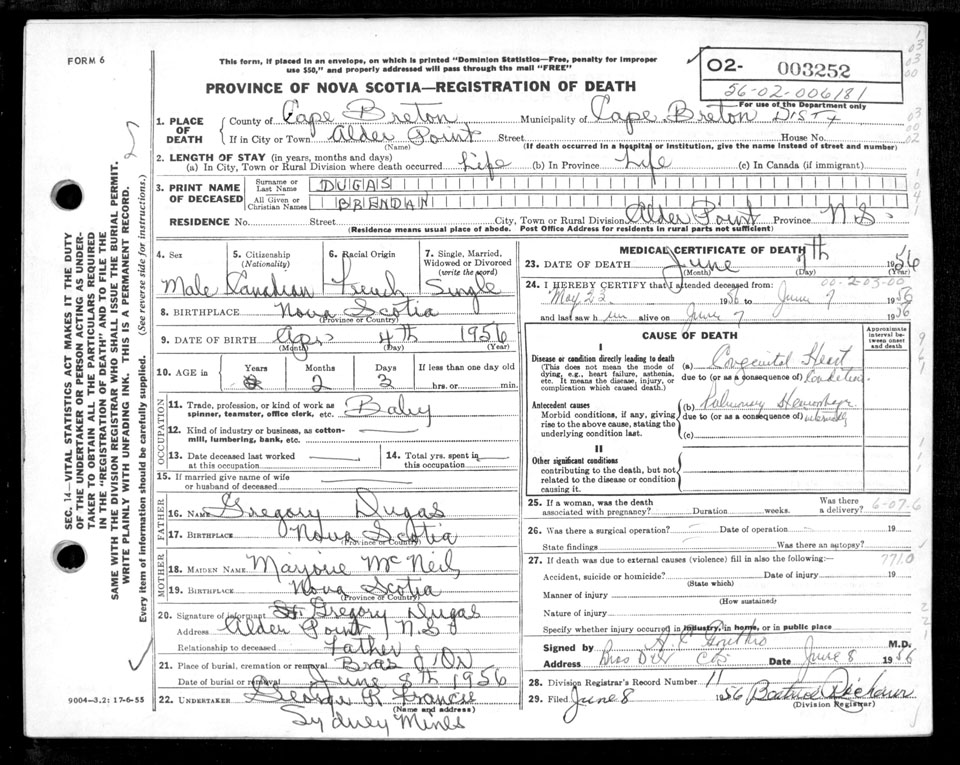 FORM 6
This form, if placed in an envelope, on which is printed "Dominion Statistics—Free, penalty for improper
use $50," and properly addressed will pass through the mail "FREE"
O2- 003252
56-02-006181
For use of the Department only
PROVINCE OF NOVA SCOTIA—REGISTRATION OF DEATH
1. PLACE OF DEATH
County of Cape Breton Municipality of Cape Breton DIST 7
If in City or Town Alder Point Street House No.
(Name) (If death occurred in a hospital or institution, give the name instead of street and number)
2. LENGTH OF STAY (in years, months and days)
(a) In City, Town or Rural Division where death occurred Life (b) In Province Life (c) In Canada (if immigrant)
3. PRINT NAME OF DECEASED
Surname or Last Name DUGAS
All Given or Christian Names BRENDAN
RESIDENCE No. Street City, Town or Rural Division Alder Point Province N.S.
(Residence means usual place of abode. Post Office Address for residents in rural parts not sufficient)
4. Sex 5. Citizenship (Nationality) 6. Racial Origin 7. Single, Married, Widowed or Divorced (write the word)
Male Canadian French Single
8. BIRTHPLACE Nova Scotia
(Province or Country)
9. DATE OF BIRTH Apr 4th 1956
(Month) (Day) (Year)
10. AGE in Years Months Days If less than one day old
2 3 hrs. or min.
OCCUPATION
11. Trade, profession, or kind of work as spinner, teamster, office clerk, etc. Baby
12. Kind of industry or business, as cotton-mill, lumbering, bank, etc.
13. Date deceased last worked at this occupation
14. Total yrs. spent in this occupation
15. If married give name of wife or husband of deceased
FATHER
16. NAME Gregory Dugas
17. BIRTHPLACE Nova Scotia
(Province or Country)
MOTHER
18. MAIDEN NAME Marjorie McNeil
19. BIRTHPLACE Nova Scotia
(Province or Country)
20. Signature of informant Gregory Dugas
Address Alder Point N.S.
Relationship to deceased Father
21. Place of burial, cremation or removal Bras d'Or
Date of burial or removal June 8th 1956
22. UNDERTAKER George R. Francis
(Name and address)
Sydney Mines
9004—3.2: 17-6-55
MEDICAL CERTIFICATE OF DEATH
23. DATE OF DEATH June 7th 1956
(Month) (Day) (Year)
24. I HEREBY CERTIFY that I attended deceased from: 00-2-03-00
May 22 1956 to June 7 1956
and last saw h im alive on June 7 1956
CAUSE OF DEATH
Approximate interval between onset and death
I
Disease or condition directly leading to death
(This does not mean the mode of dying, e.g., heart failure, asthenia, etc. It means the disease, injury, or complication which caused death.)
(a) Congenital Heart
due to (or as a consequence of) Condition
Antecedent causes
Morbid conditions, if any, giving rise to the above cause, stating the underlying condition last.
(b) Pulmonary Hemorrhage
due to (or as a consequence of)
(c)
II
Other significant conditions
contributing to the death, but not related to the disease or condition causing it.
25. If a woman, was the death associated with pregnancy? Duration weeks. Was there a delivery?
6-07.6
26. Was there a surgical operation? Date of operation 19
State findings Was there an autopsy?
27. If death was due to external causes (violence) fill in also the following: 7710
Accident, suicide or homicide? Date of injury 19
(State which)
Manner of injury
(How sustained)
Nature of injury
Specify whether injury occurred in industry, in home, or in public place
Signed by M.D.
Address Bras D'Or Date June 8 1956
28. Division Registrar's Record Number 11
29. Filed June 8 1956 Beatrice
(Division Registrar)
SEC. 14—VITAL STATISTICS ACT MAKES IT THE DUTY
OF THE UNDERTAKER OR PERSON ACTING AS UNDER-
TAKER TO OBTAIN ALL THE PARTICULARS REQUIRED
IN THE "REGISTRATION OF DEATH" AND TO FILE THE
SAME WITH THE DIVISION REGISTRAR WHO SHALL ISSUE THE BURIAL PERMIT.
WRITE PLAINLY WITH UNFADING INK. THIS IS A PERMANENT RECORD.
Every item of information should be carefully supplied. (See reverse side for instructions.)